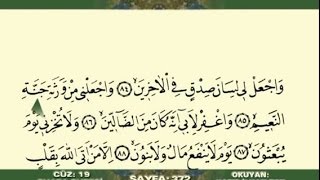 وَاجْعَلْ لِي لِسَانَ صِدْقٍ فِي الْاٰخِرِينَ ﴿٨٤﴾ وَاجْعَلْنِي مِنْ وَرَثَةِ جَنَّةِ
النَّعِيمِ ﴿٨٥﴾ وَاغْفِرْ لِاَبِي اِنَّهُ كَانَ مِنَ الضَّالِّينَ ﴿٨٦﴾ وَلَا تُخْزِنِي يَوْمَ
يُبْعَثُونَ ﴿٨٧﴾ يَوْمَ لَا يَنْفَعُ مَالٌ وَلَا بَنُونَ ﴿٨٨﴾ اِلَّا مَنْ اَتَى اللّٰهَ بِقَلْبٍ
CÜZ: 19 SAYFA: 372 OKUYAN: